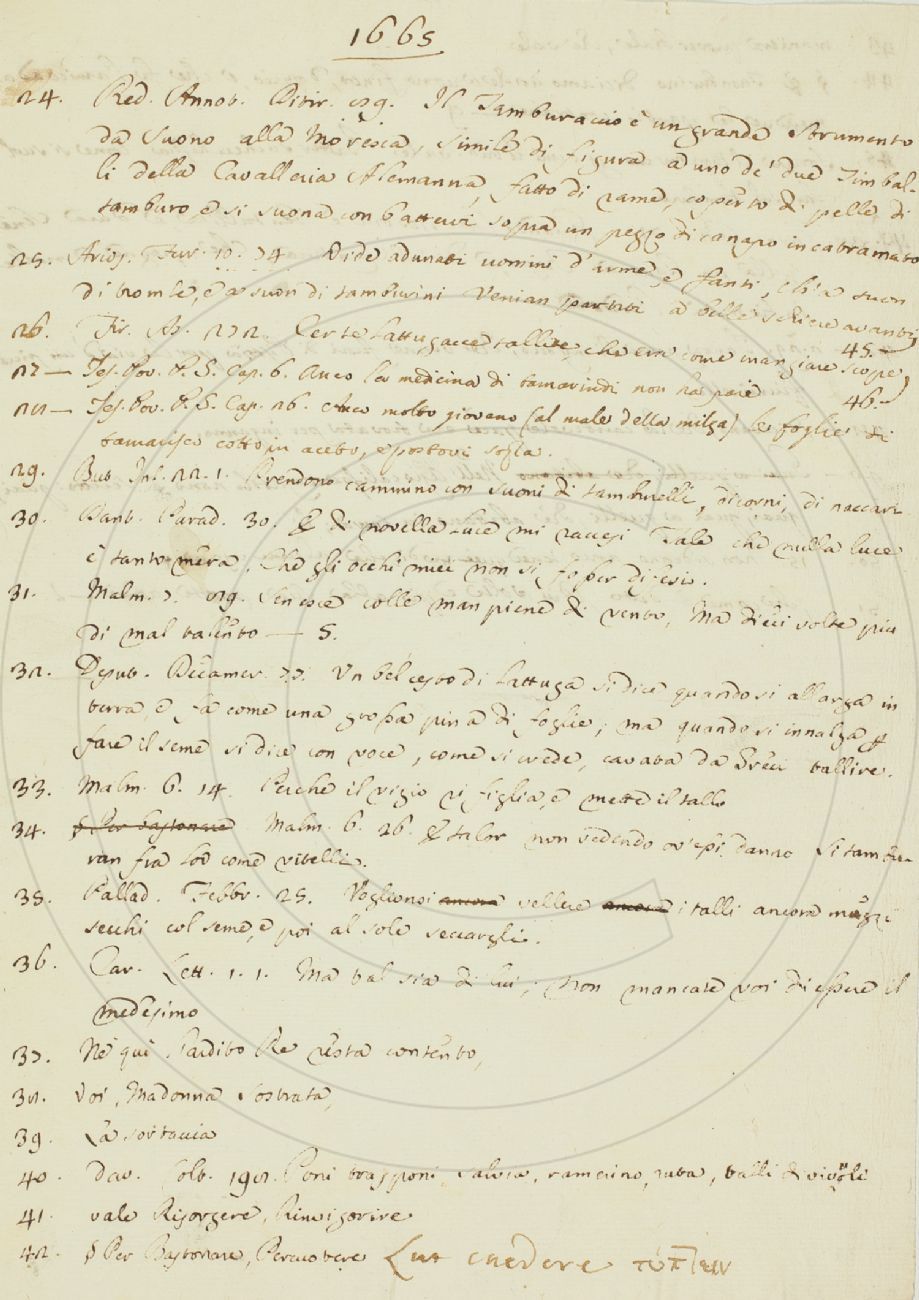 1665
24. Red. Annot. Ditir. 59. Il Tamburaccio è un grande strumento
da suono alla Moresca, simile di figura a uno de' due Timbal-
li della Cavalleria Alemanna, fatto di rame, coperto di pelle di
tamburo, e si suona con battervi sopra un pezzo di canapo incatramato
25. Arios. Fur. 10. 74 Vide adunati uomini d'arme, e fanti, Ch'a suon
di trombe, e a suon di tamburini Venian partiti a belle schiere avanti
26. Fir. As. 272. Certe lattugacce tallite, che era come mangiare scope
45.
27 — Tes. Pov. P. S. Cap. 6. Anco la medicina di tamarindi non ha pare
46.
28 — Tes. Pov. P. S. Cap. 26. Anco molto giovano (al male della milza) le foglie di
tamarisco cotto in aceto, e postovi sopra.
29. But. Inf. 22. 1. Prendono cammino con suoni di tamburelli, di corni, di naccari
30. Dant. Parad. 30. E di novella luce mi raccesi Tale che nulla luce
è tanto mera, Che gli occhi miei non si fosser difesi.
31. Malm. 7. 59. Sen'esce colle man piene di vento, Ma dieci volte più
di mal talento — S.
32. Deput. Decamer. 77. Un bel cesto di lattuga si dice quando si allarga in
terra, e fa come una grossa pina di foglie; ma quando si innalza p
fare il seme si dice con voce, come si crede, cavata da Greci tallire.
33. Malm. 6. 14. Perchè il vizio rifiglia, e mette il tallo
34. § Per bastonare Malm. 6. 26. E talor non vedendo ov'essi danno Si tambu-
ran fra lor come vitelli.
35. Pallad. Febbr. 25. Voglionsi ancora vellere ancora i talli ancora mezzi
secchi col seme, e poi al sole seccargli.
36. Car. Lett. 1. 1. Ma tal sia di lui; non mancate voi di essere il
medesimo
37. Nè quì, l'ardito Re resta contento,
38. Voi, Madonna Sostrata,
39. La sortaccia
40. Dav. Colt. 198. Poni trapponi salvia, ramerino, ruta, talli di vivuoli
41. vale Risorgere, Rinvigorire
42. § Per Bastonare, Percuotere Lat caedere τύπτειν